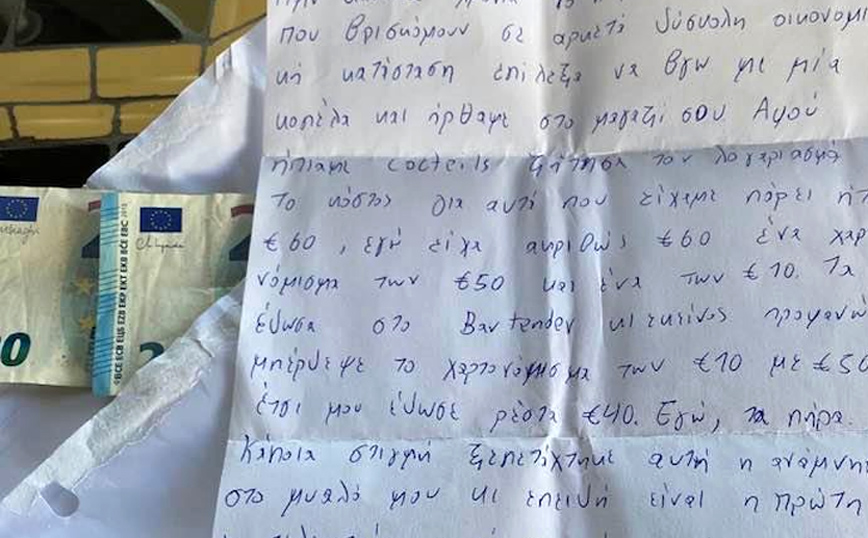 που βρισκόμουν σε αρκετά δύσκολη οικονομι
κή κατάσταση επίλεξα να βγω με μία
κοπέλα και ήρθαμε στο μαγαζί σου. Αφού
ήπιαμε cocteils ζήτησα τον λογαριασμό
Το κόστος για αυτά που είχαμε πάρει ήτ
€60, εγώ είχα ακριβώς €60 ένα χαρ
νόμισμα των €50 και ένα των €10. Τα
έδωσα στο Bartender κι εκείνος προφανώ
μπέρδεψε το χαρτονόμισμα των €10 με €50
έτσι μου έδωσε ρέστα €40. Εγώ, τα πήρα.
Κάποια στιγμή ξεπετάχτηκε αυτή η ανάμνη
στο μυαλό μου κι επειδή είναι η πρώτη